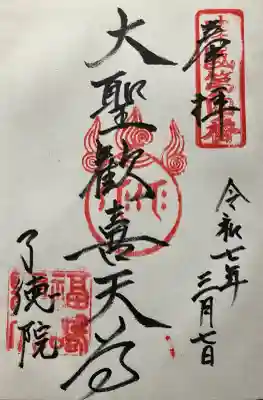 奉拝
大聖歓喜天尊
令和七年
三月七日
了徳院